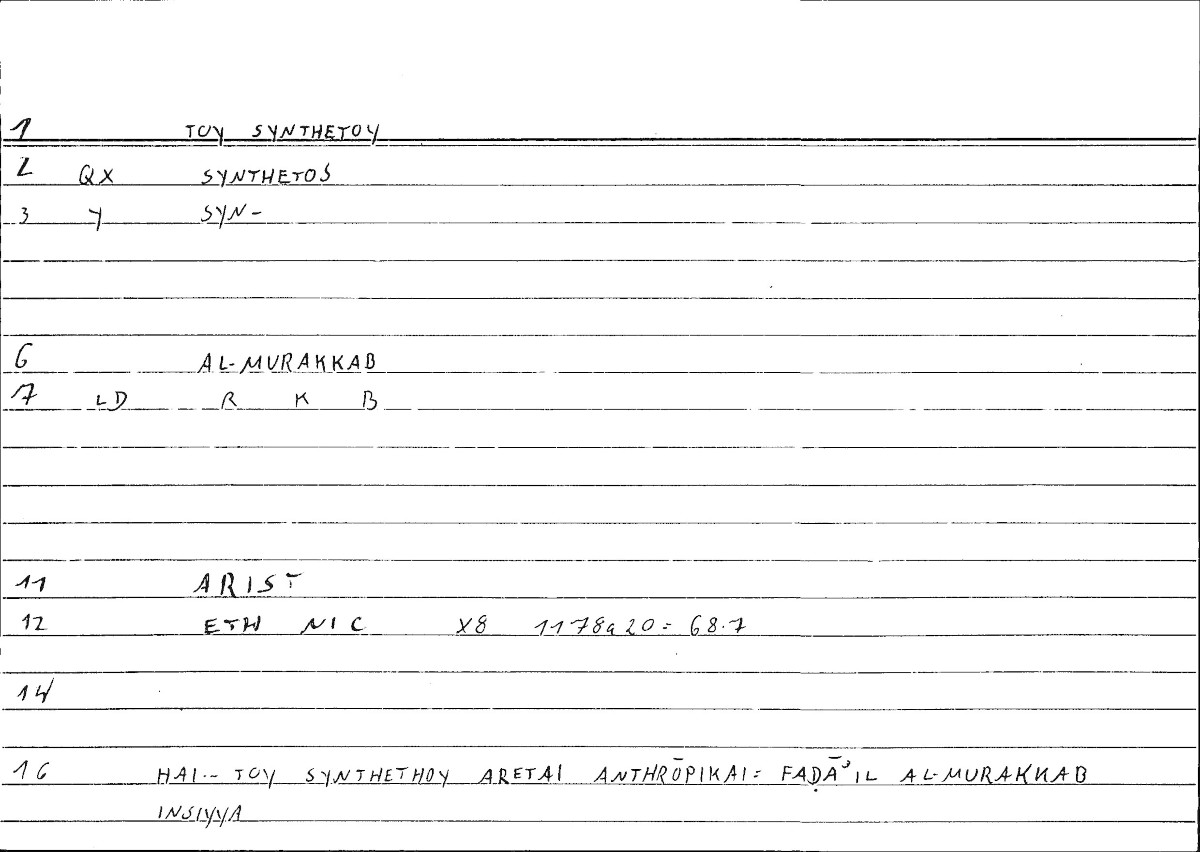 1 TOY SYNTHETOY
2 QX SYNTHETOS
3 Y SYN-
6 AL-MURAKKAB
7 LD R K B
11 ARIST
12 ETH NIC X8 1178a20= 68.7
14
16 HAI-- TOY SYNTHETHOY ARETAI ANTHRŌPIKAI= FAḌĀʾIL AL-MURAKKAB
INSIYYA